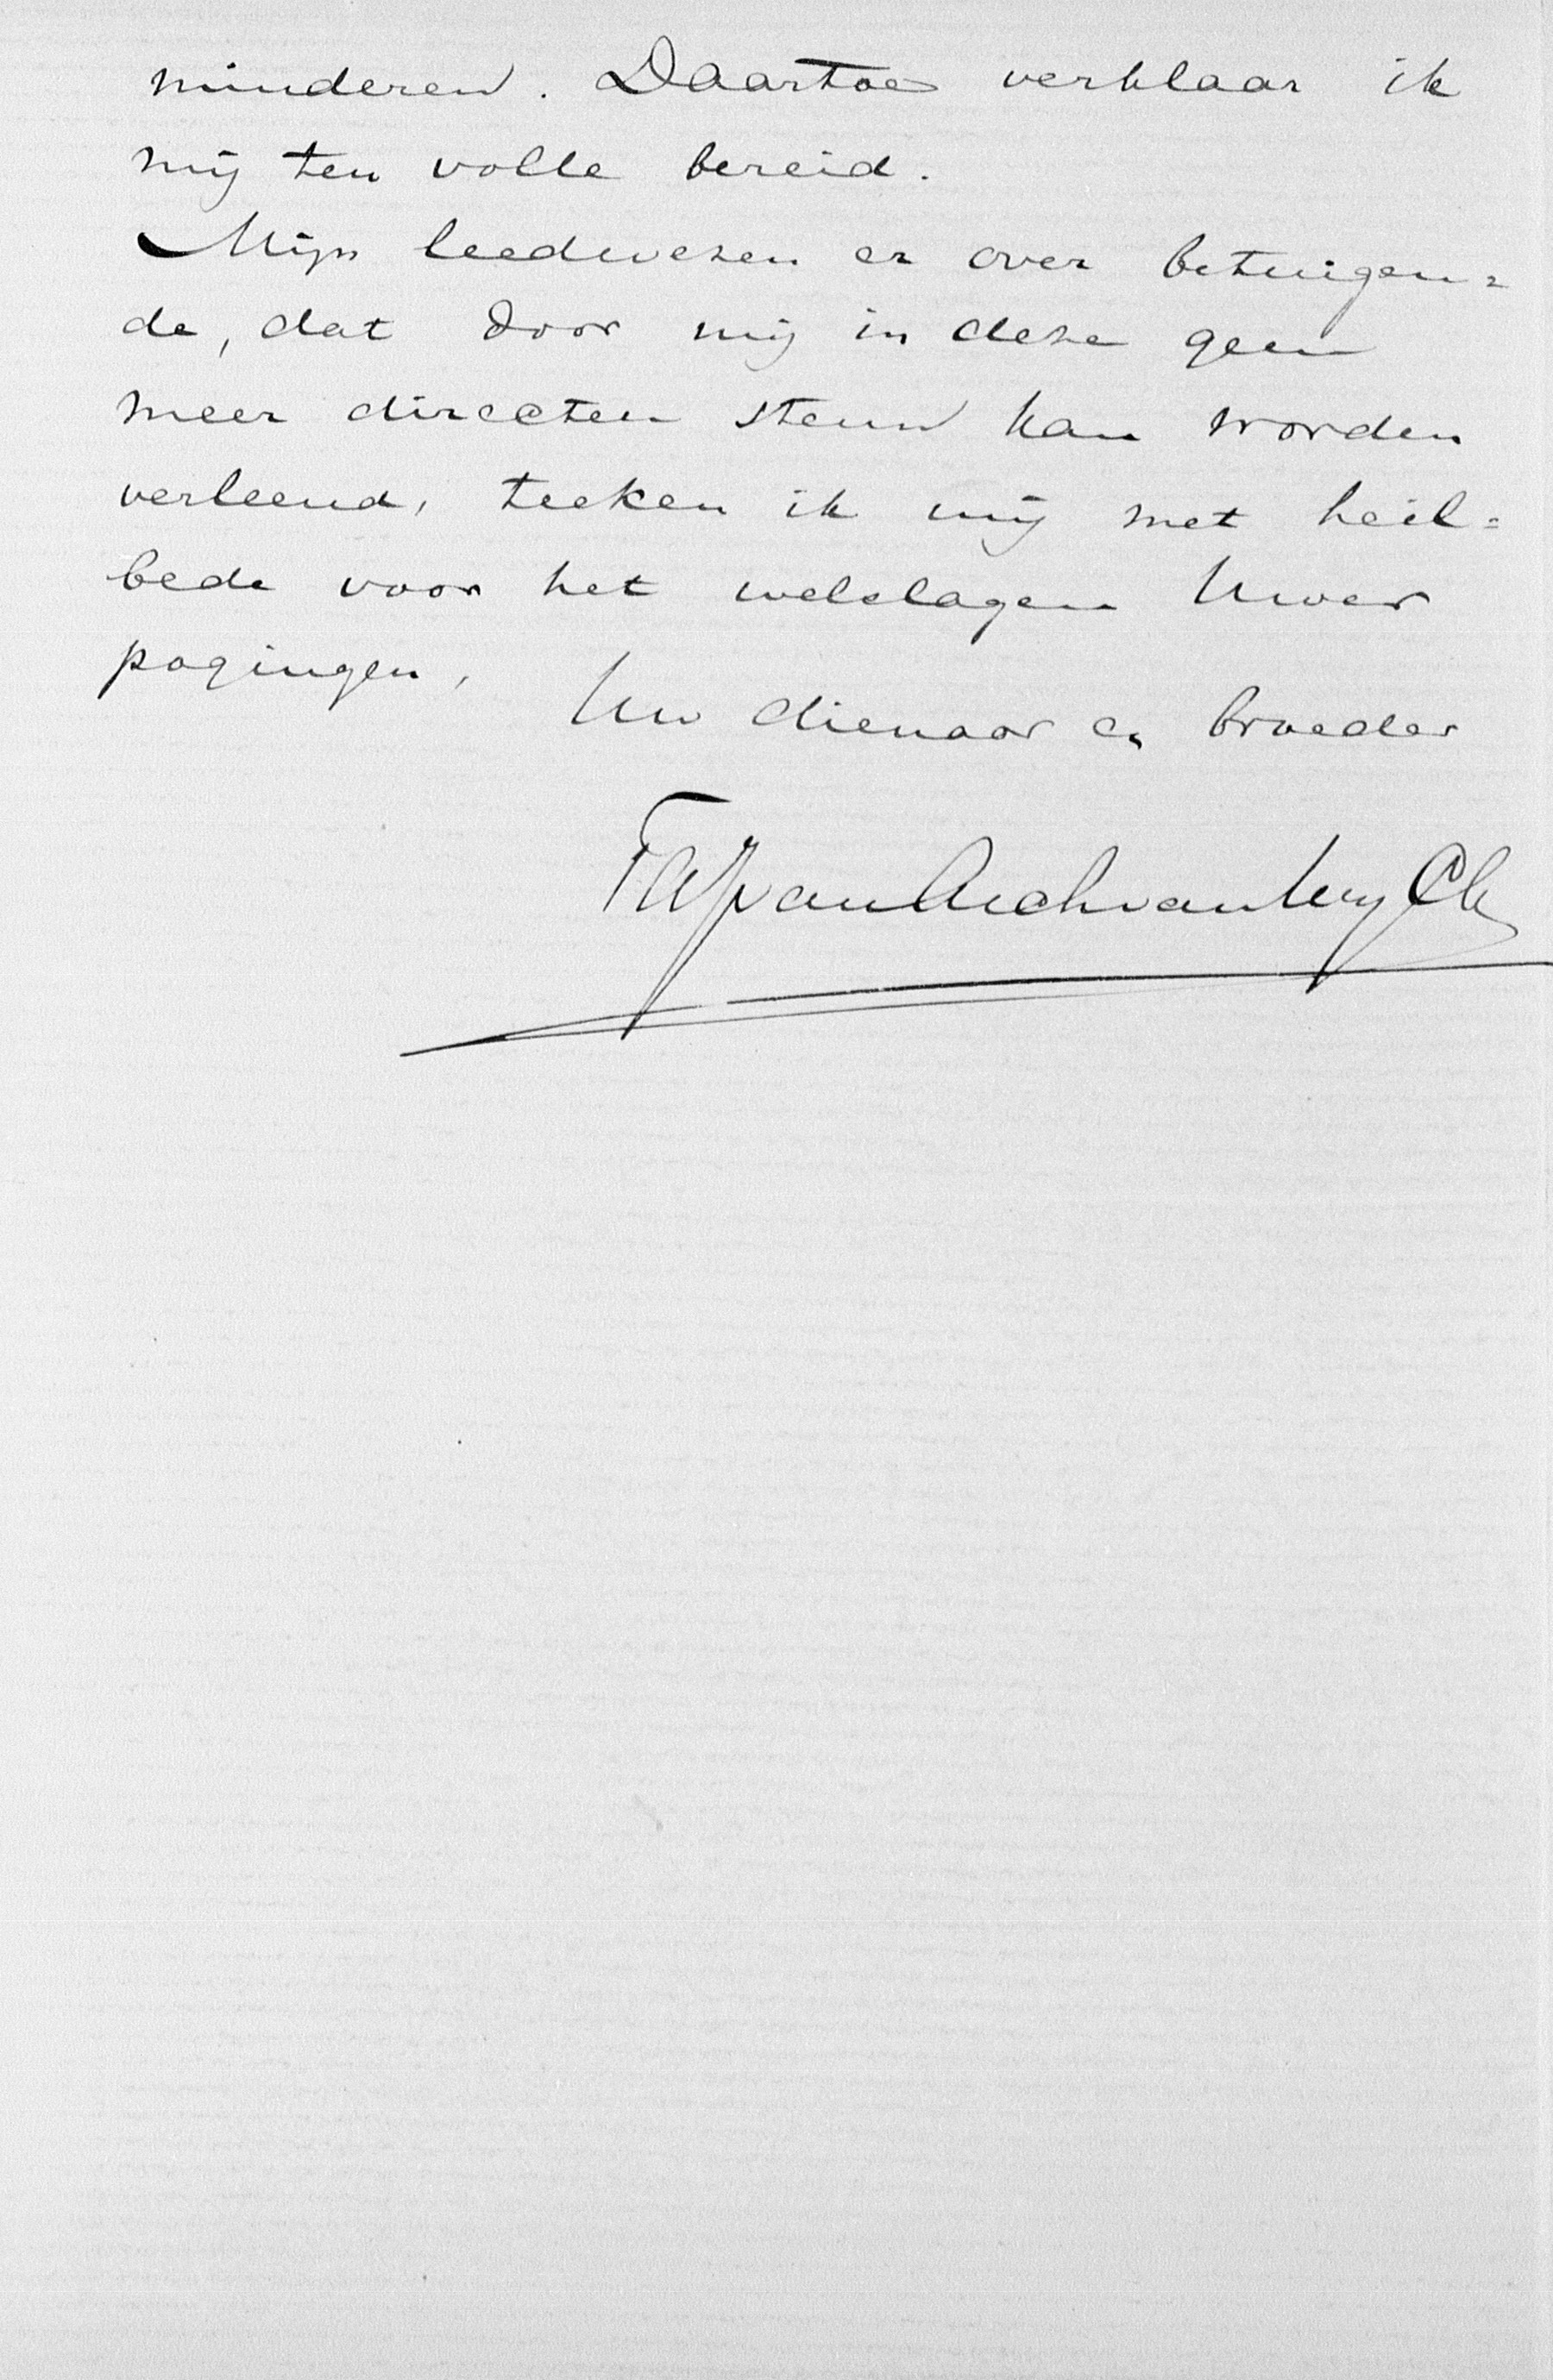 minderen. Daartoe verklaar ik
mij ten volle bereid.
Mijn leedwezen er over betuigen=
de, dat door mij in deze geen
meer directen steun kan worden
verleend, teeken ik mij met heil=
bede voor het welslagen Uwer
pogingen,
Uw dienaar en broeder